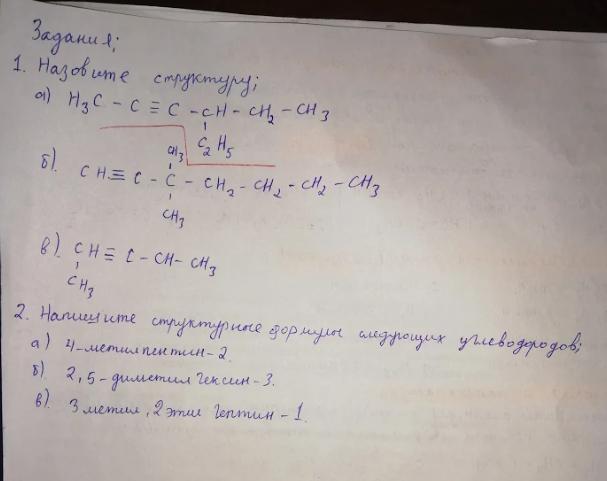 Задания;
1. Назовите структуру;
а) H3C - C ≡ C - CH - CH2 - CH3
C2H5
CH3
б). CH ≡ C - C - CH2 - CH2 - CH2 - CH3
CH3
в). CH ≡ C - CH - CH3
CH3
2. Напишите структурные формулы следующих углеводородов;
а) 4-метилпентин-2.
б). 2,5-диметил гексин-3.
в). 3 метил, 2 этил гептин-1.